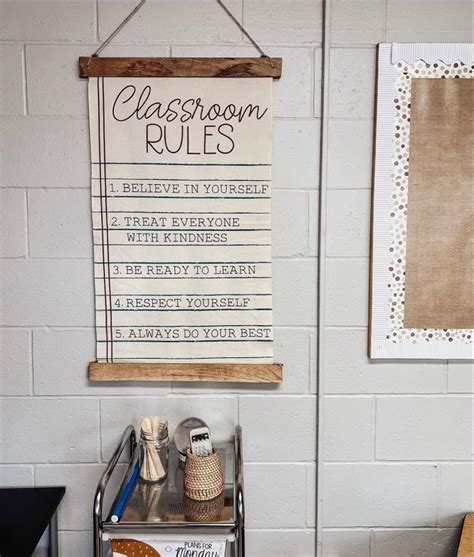 Classroom
RULES
1. BELIEVE IN YOURSELF
2. TREAT EVERYONE
WITH KINDNESS
3. BE READY TO LEARN
4. RESPECT YOURSELF
5. ALWAYS DO YOUR BEST
PLANS FOR
Monday